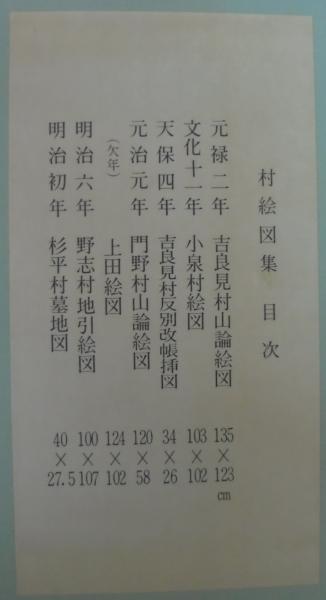 村絵図集 目次
元禄二年 吉良見村山論絵図 135×123cm
文化十一年 小泉村絵図 103×102
天保四年 吉良見村反別改帳挿図 34×26
元治元年 門野村山論絵図 120×58
(欠年) 上田絵図 124×102
明治六年 野志村地引絵図 100×107
明治初年 杉平村墓地図 40×27.5